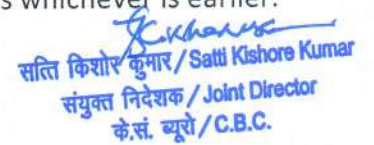 s whichever is earlier.
सत्ति किशोर कुमार / Satti Kishore Kumar
संयुक्त निदेशक / Joint Director
के.सं. ब्यूरो / C.B.C.